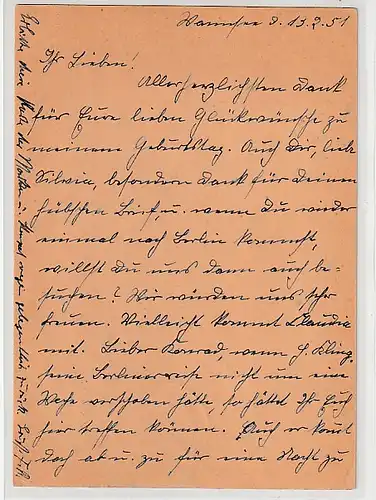 Wannsee d. 13.2.51
Ihr Lieben!
Allerherzlichsten Dank
für Eure lieben Glückwünsche zu
meinem Geburtstag. Auch Dir, liebe
Silvia, besonderen Dank für Deinen
hübschen Brief u. wenn Du wieder
einmal nach Berlin kommst,
willst Du uns dann auch be-
suchen? Wir würden uns sehr
freuen. Vielleicht kommt Claudia
mit. Lieber Konrad, wenn H. Kling
seine Berlinreise nicht um eine
Woche verschoben hätte, so hättet Ihr Euch
hier treffen können. Auch er kommt
doch ab u. zu für eine Nacht zu
Erbitte diese Karte der Marken u. Stempel wegen gelegentlich zurück